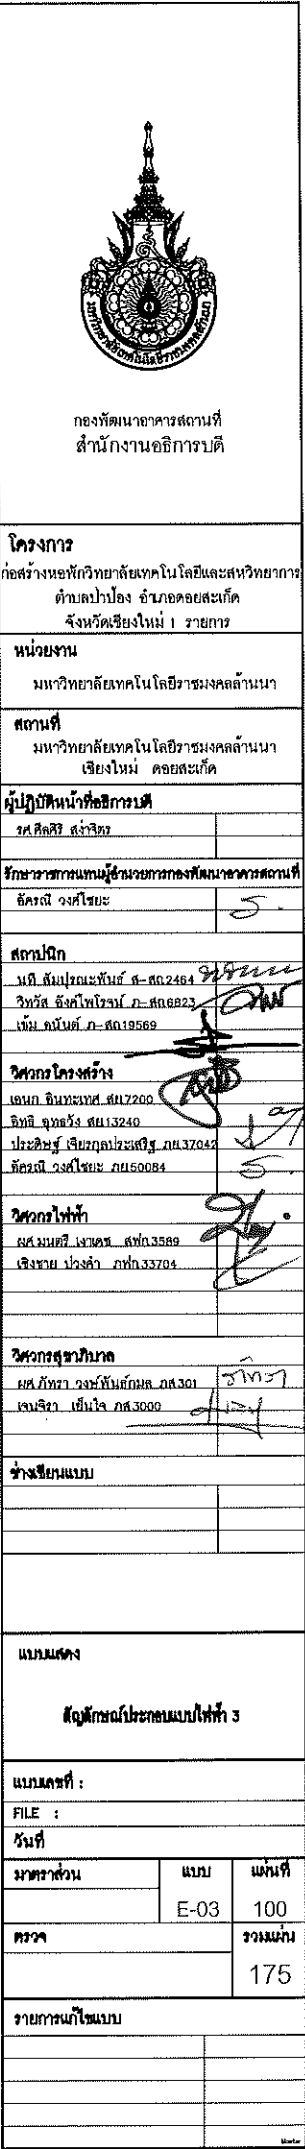 มหาวิทยาลัยเทคโนโลยีราชมงคลล้านนา
กองพัฒนาอาคารสถานที่
สำนักงานอธิการบดี
โครงการ
ก่อสร้างหอพักวิทยาลัยเทคโนโลยีและสหวิทยาการ
ตำบลป่าป้อง อำเภอดอยสะเก็ด
จังหวัดเชียงใหม่ 1 รายการ
หน่วยงาน
มหาวิทยาลัยเทคโนโลยีราชมงคลล้านนา
สถานที่
มหาวิทยาลัยเทคโนโลยีราชมงคลล้านนา
เชียงใหม่ ดอยสะเก็ด
ผู้ปฏิบัติหน้าที่อธิการบดี
รศ.ศีลศิริ สง่าจิตร
รักษาราชการแทนผู้อำนวยการกองพัฒนาอาคารสถานที่
อัครณี วงศ์ไชยะ
สถาปนิก
นที สัมปุรณะพันธ์ ส-สถ2464
วิทวัส อังศ์ไพโรจน์ ภ-สถ6823
เข้ม อนันต์ ภ-สถ19569
วิศวกรโครงสร้าง
เอนก อินทะเทศ สย7200
อิทธิ อุทธวัง สย13240
ประดิษฐ์ เจียรกุลประเสริฐ ภย37042
อัครณี วงศ์ไชยะ ภย50084
วิศวกรไฟฟ้า
ผศ.มนตรี เงาเดช สฟก3589
เชิงชาย ปวงคำ ภฟก33704
วิศวกรสุขาภิบาล
ผศ.ภัทรา วงษ์พันธ์กมล ภส301
เจนจิรา เย็นใจ ภส3000
ช่างเขียนแบบ
แบบแสดง
สัญลักษณ์ประกอบแบบไฟฟ้า 3
แบบเลขที่ :
FILE :
วันที่
มาตราส่วน แบบ แผ่นที่
E-03 100
ตรวจ รวมแผ่น
175
รายการแก้ไขแบบ